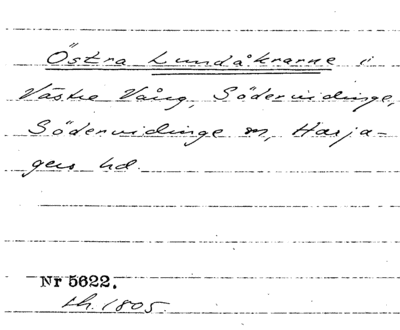 Östra Lundåkrarne i
Västre Vång, Södervidinge,
Södervidinge sn, Harja-
gers hd.
Nr 5622.
sh. 1805.